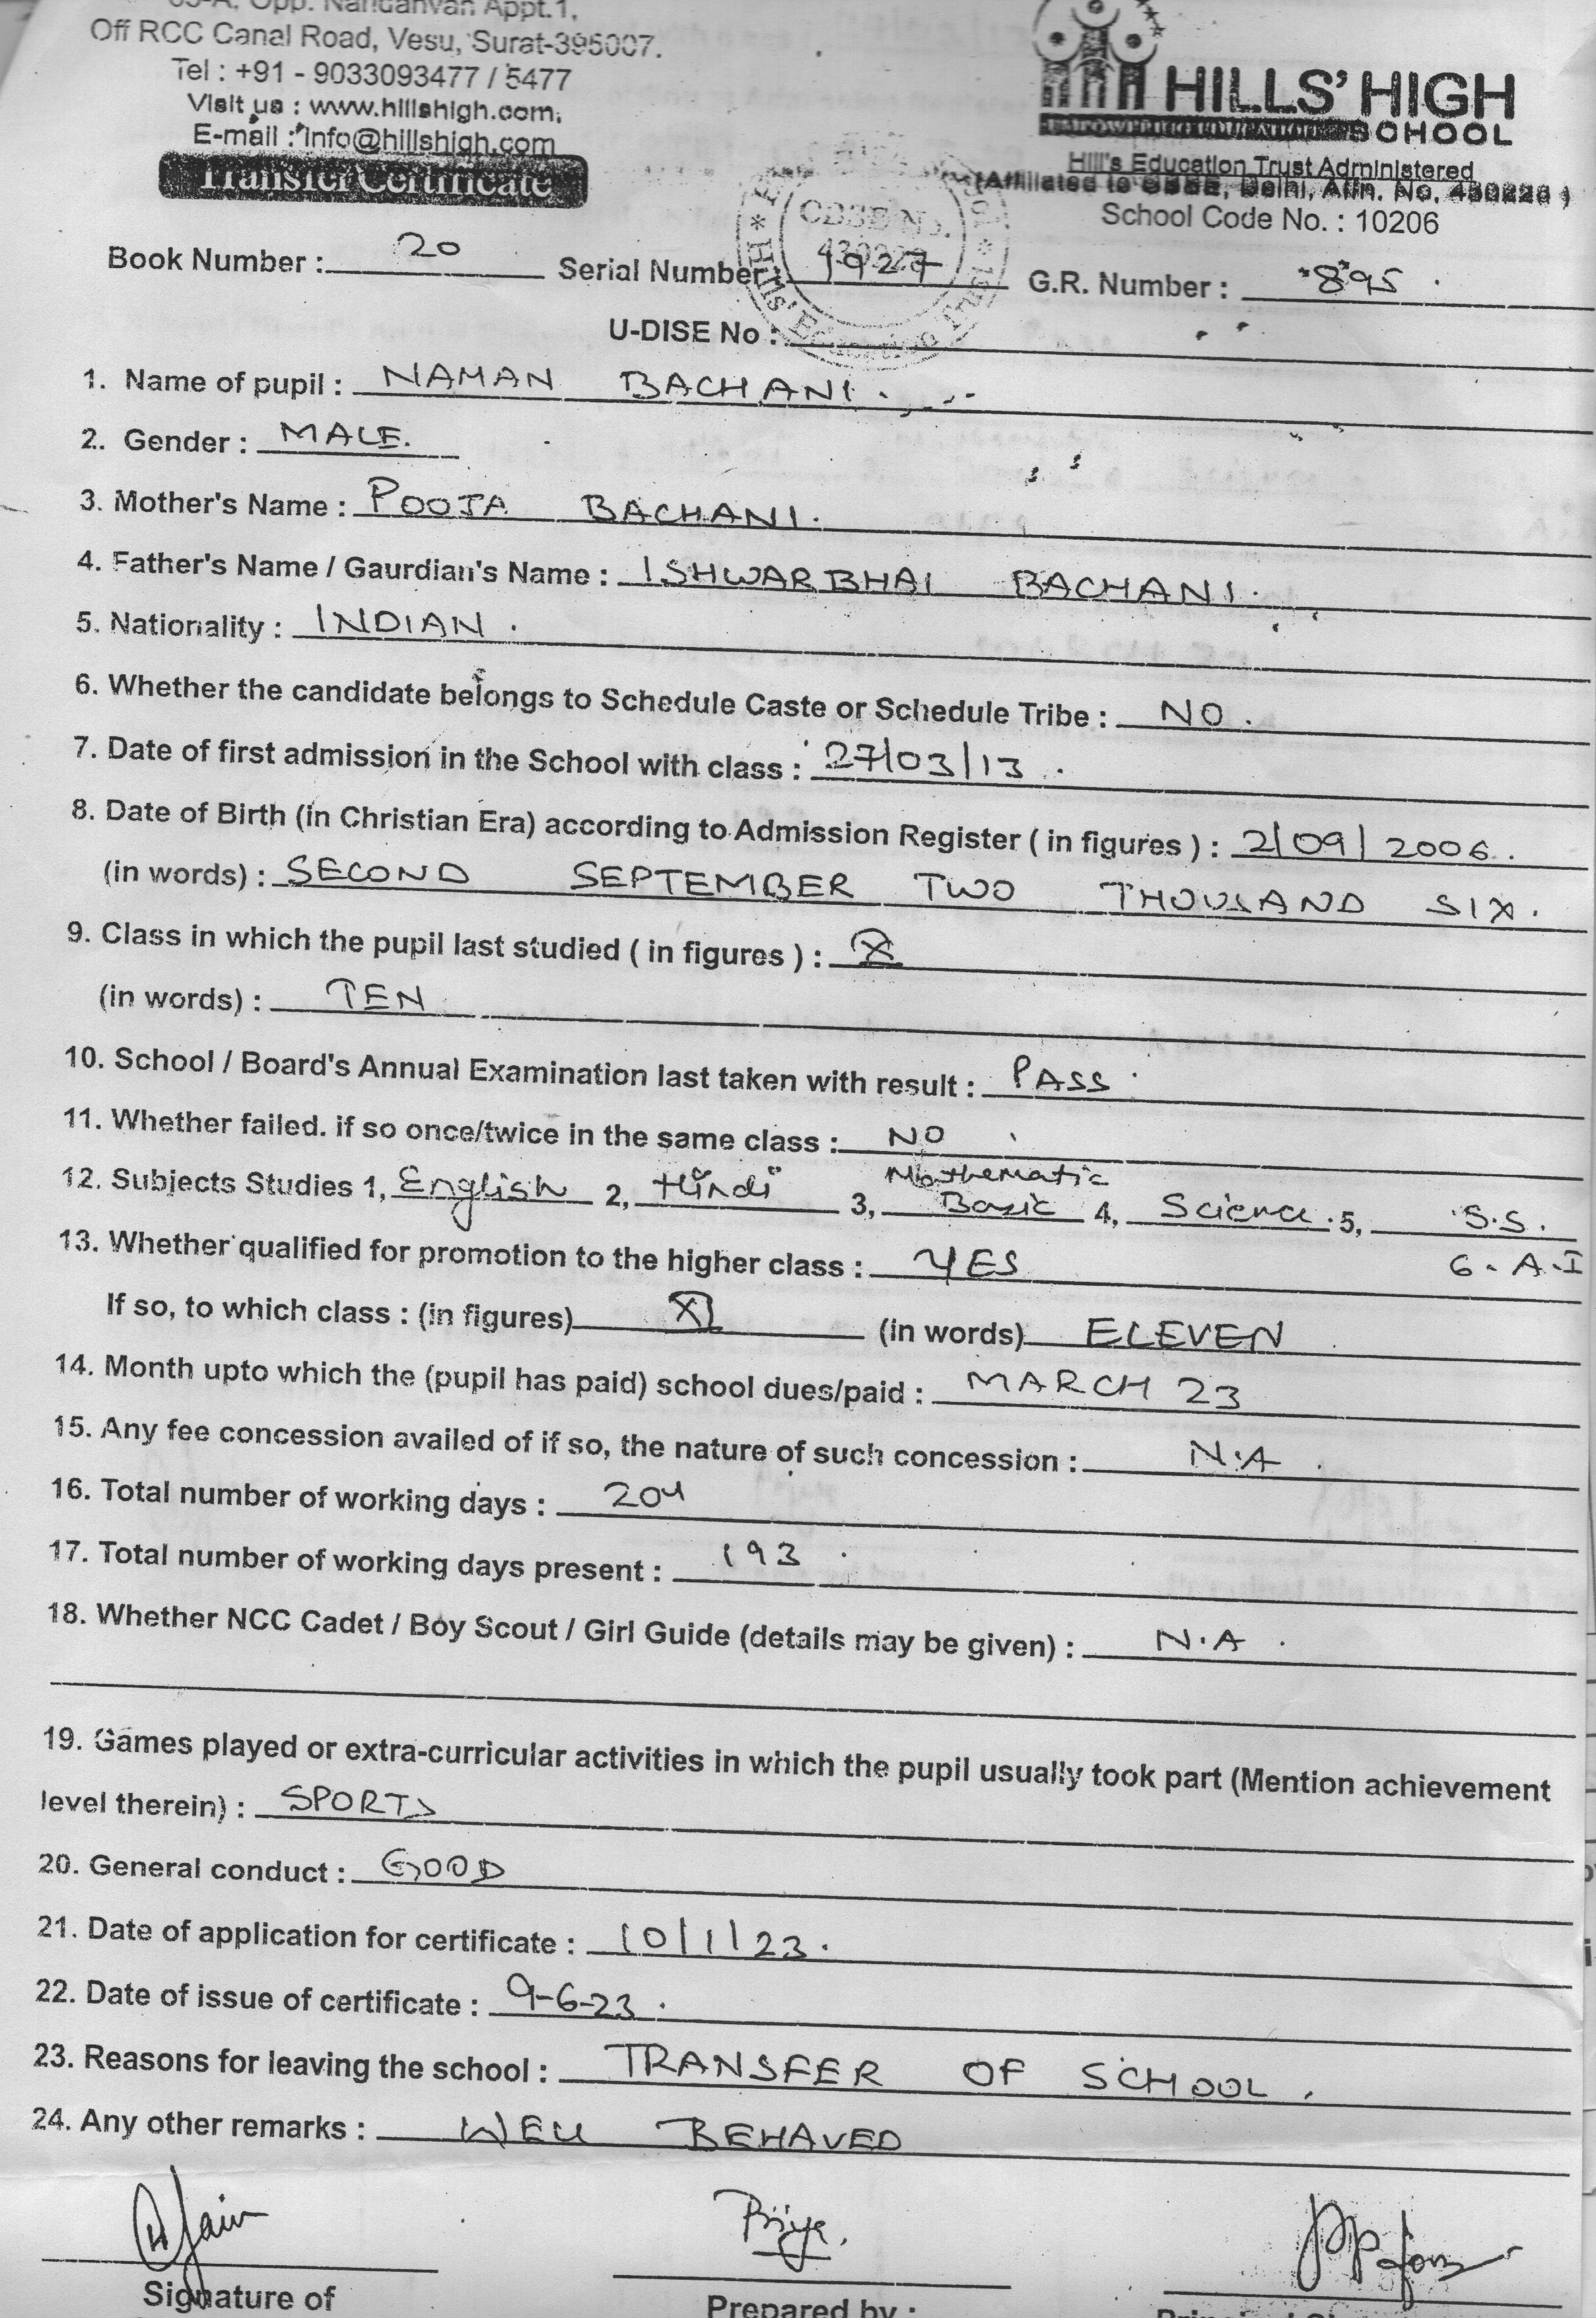 Opp. Nandanvan Appt.1,
Off RCC Canal Road, Vesu, Surat-395007.
Tel : +91 - 9033093477 / 5477
Visit us : www.hillshigh.com.
E-mail : info@hillshigh.com
Transfer Certificate
HILLS' HIGH
SCHOOL
Hill's Education Trust Administered
(Affiliated to CBSE, Delhi, Affn. No. 430226)
School Code No. : 10206
Book Number : 20 Serial Number : 1927 G.R. Number : "895
U-DISE No :
1. Name of pupil : NAMAN BACHANI.
2. Gender : MALE.
3. Mother's Name : POOJA BACHANI.
4. Father's Name / Gaurdian's Name : ISHWARBHAI BACHANI.
5. Nationality : INDIAN.
6. Whether the candidate belongs to Schedule Caste or Schedule Tribe : NO.
7. Date of first admission in the School with class : 27/03/13.
8. Date of Birth (in Christian Era) according to Admission Register ( in figures ) : 2/09/2006.
(in words) : SECOND SEPTEMBER TWO THOUSAND SIX.
9. Class in which the pupil last studied ( in figures ) : X
(in words) : TEN
10. School / Board's Annual Examination last taken with result : PASS
11. Whether failed. if so once/twice in the same class : NO
12. Subjects Studies 1, English 2, Hindi 3, Mathematic Basic 4, Science 5, S.S.
6. A.I
13. Whether qualified for promotion to the higher class : YES
If so, to which class : (in figures) XI (in words) ELEVEN
14. Month upto which the (pupil has paid) school dues/paid : MARCH 23
15. Any fee concession availed of if so, the nature of such concession : N.A.
16. Total number of working days : 204
17. Total number of working days present : 193
18. Whether NCC Cadet / Boy Scout / Girl Guide (details may be given) : N.A.
19. Games played or extra-curricular activities in which the pupil usually took part (Mention achievement
level therein) : SPORTS
20. General conduct : GOOD
21. Date of application for certificate : 10/1/23.
22. Date of issue of certificate : 9-6-23.
23. Reasons for leaving the school : TRANSFER OF SCHOOL.
24. Any other remarks : WELL BEHAVED
Signature of
Prepared by :